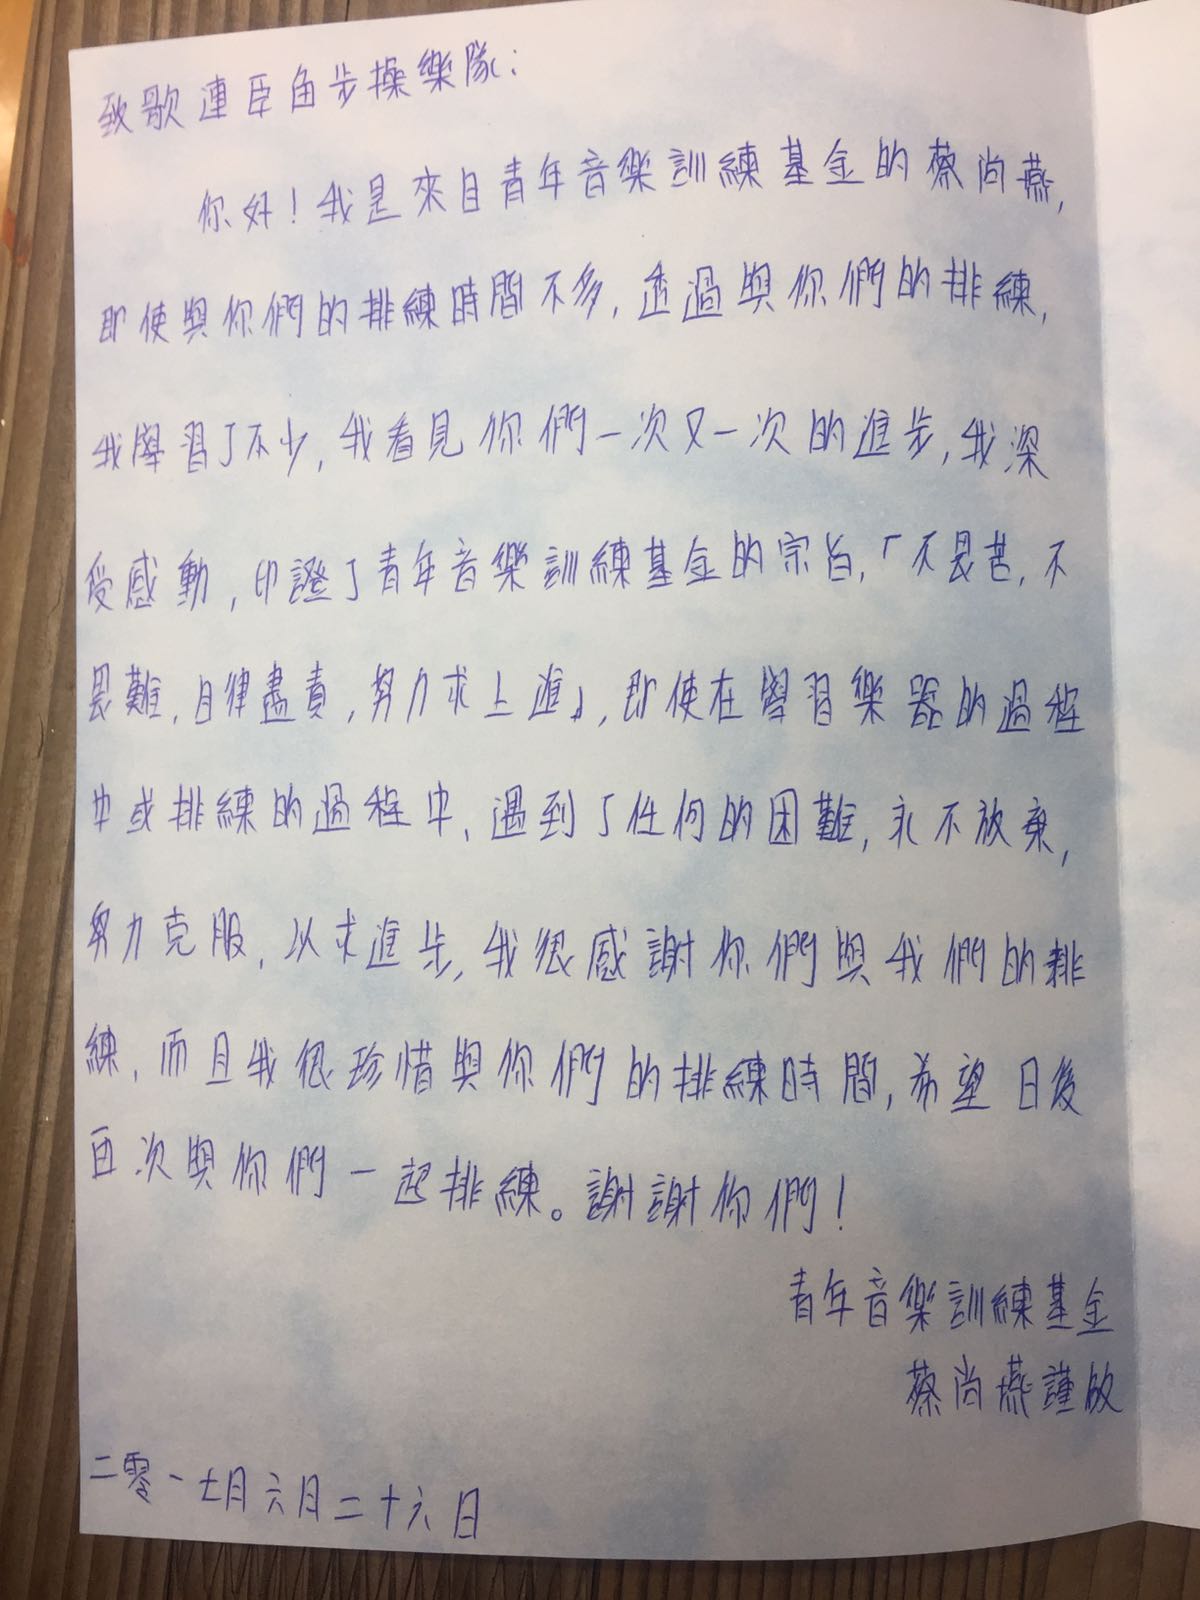 致歌連臣角步操樂隊：
你好！我是來自青年音樂訓練基金的蔡尚燕,
即使與你們的排練時間不多,透過與你們的排練,
我學習了不少,我看見你們一次又一次的進步,我深
受感動,印證了青年音樂訓練基金的宗旨,「不畏苦,不
畏難,自律盡責,努力求上進」,即使在學習樂器的過程
中或排練的過程中、遇到了任何的困難,永不放棄,
努力克服、以求進步,我很感謝你們與我們的排
練、而且我很珍惜與你們的排練時間,希望日後
再次與你們一起排練。謝謝你們！
青年音樂訓練基金
蔡尚燕謹啟
二零一七月六月二十六日